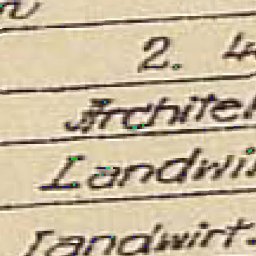 2. 4
Architek
Landwi
Landwirt.